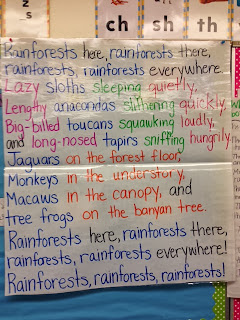 s
z
ch
sh
th
Rainforests here, rainforests there,
rainforests, rainforests everywhere.
Lazy sloths sleeping quietly,
Lengthy anacondas slithering quickly,
Big-billed toucans squawking loudly,
and long-nosed tapirs sniffing hungrily.
Jaguars on the forest floor,
Monkeys in the understory,
Macaws in the canopy, and
tree frogs on the banyan tree.
Rainforests here, rainforests there
rainforests, rainforests everywhere!
Rainforests, rainforests, rainforests!